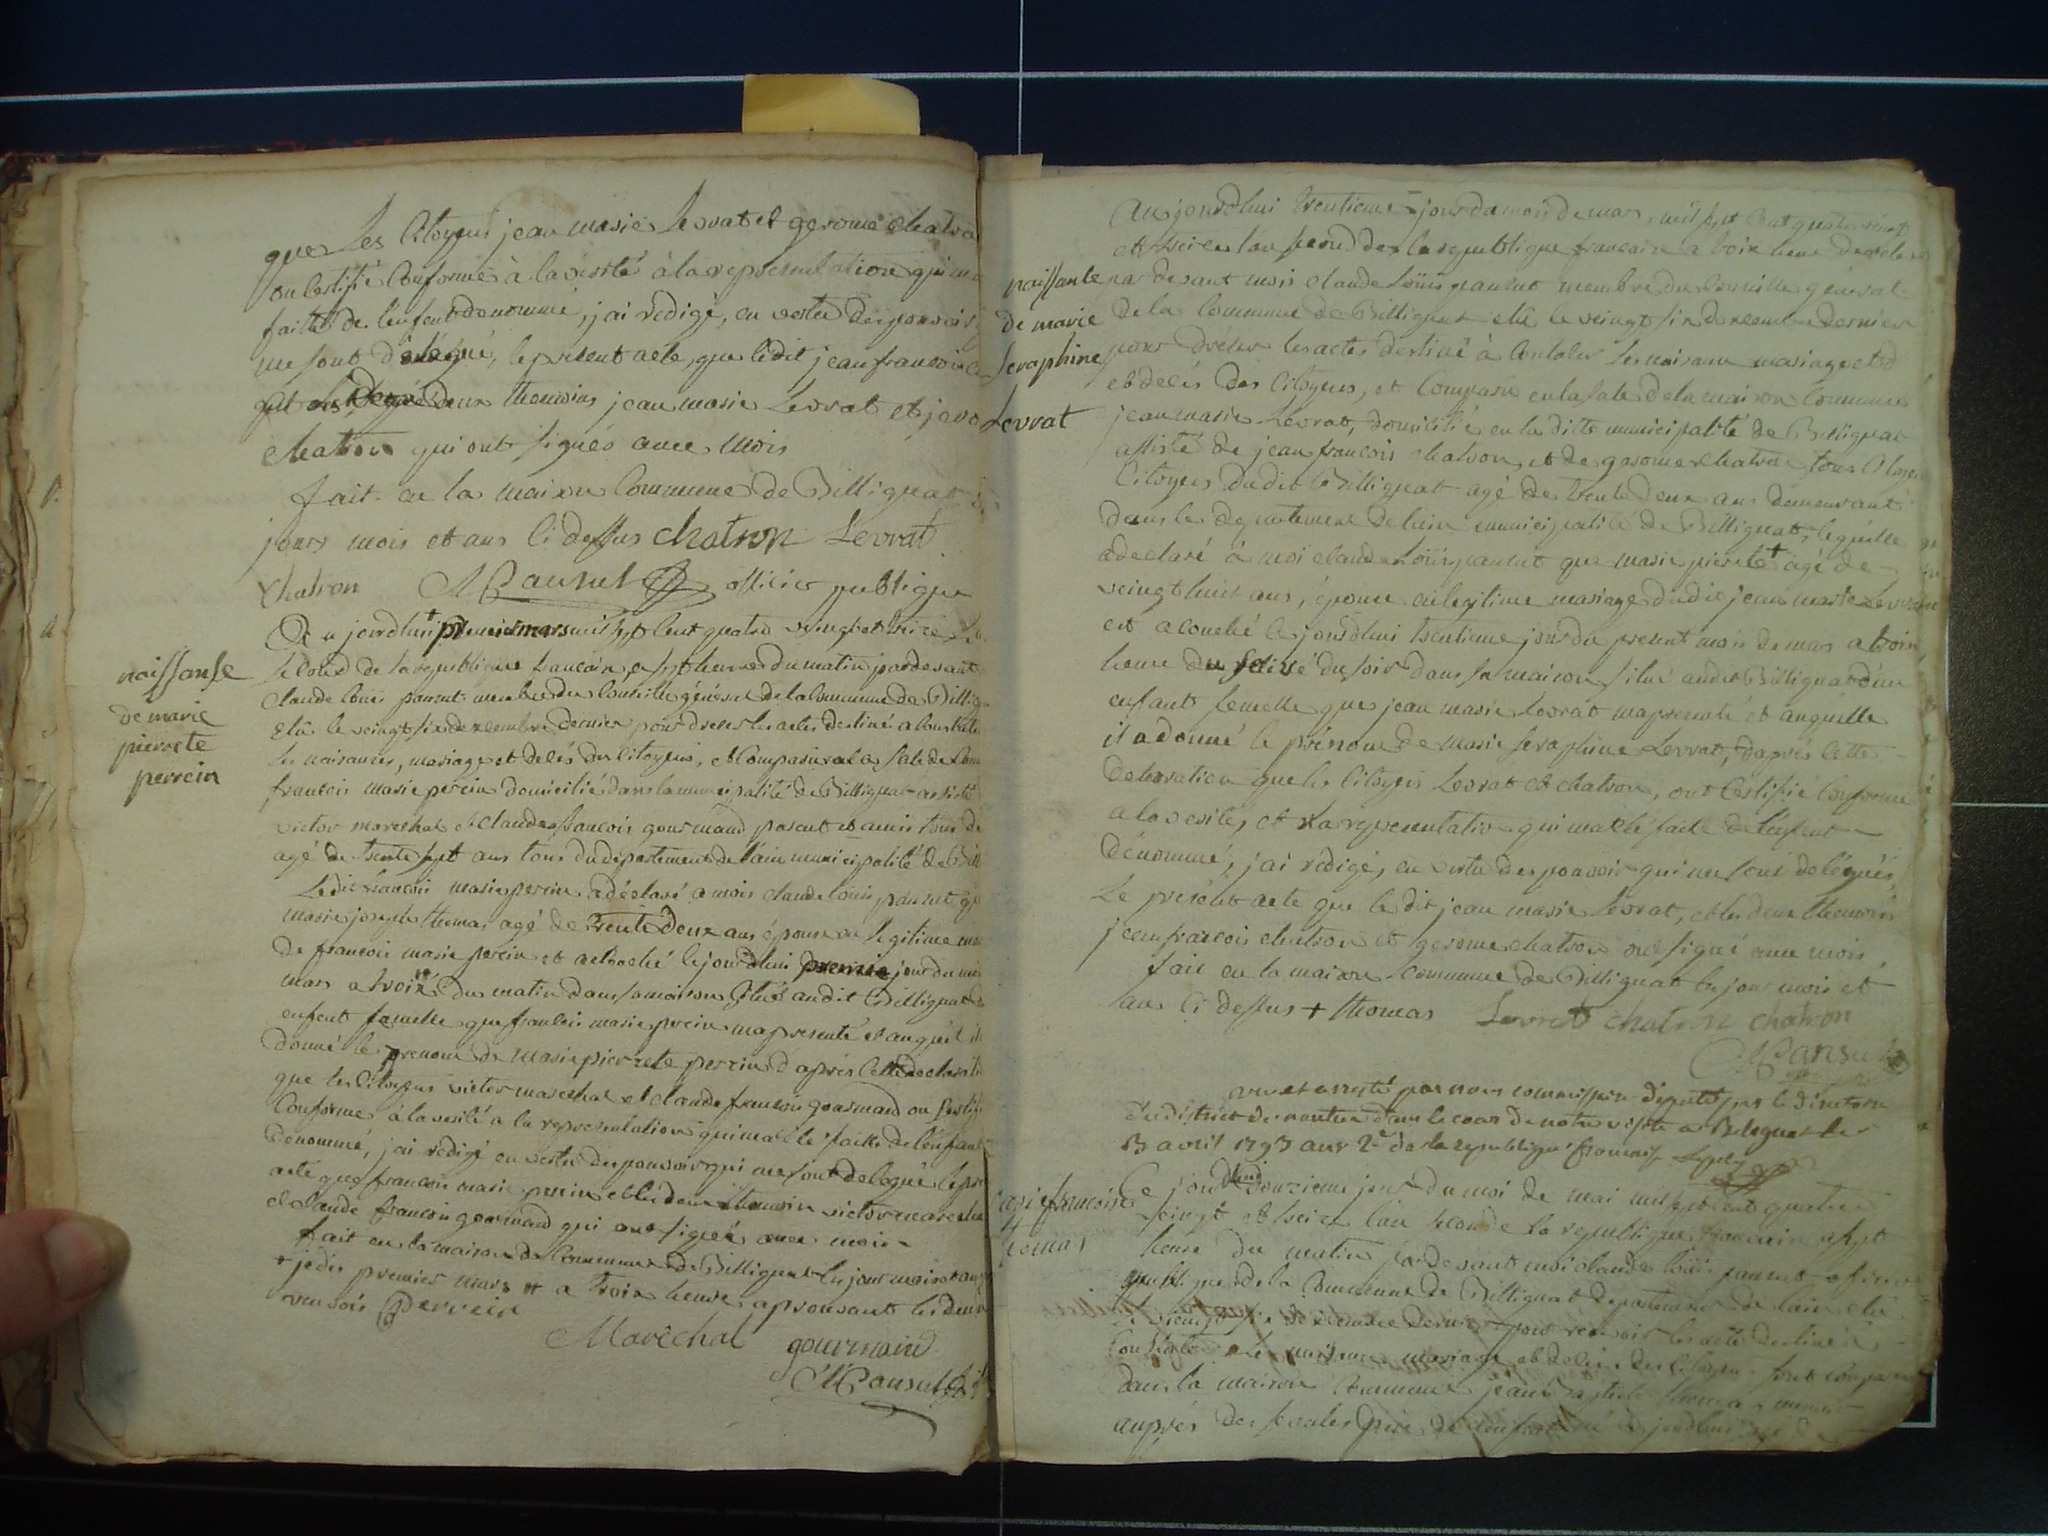 que les Citoyens jean marie Levrat et gerome chatro
on Certifié Conforme à la verité à la representation qui ma
faitte de lenfent denommé, j'ai rédigé, en vertu des pouvoirs
me sont délégué, le présent acte, que ledit jean francois
deux themoins jean marie Levrat et jero
chatron qui ont signés avec mois
fait en la maison Commune de Billignat
jours mois et ans Ci dessus chatron Levrat
Chatron Pansut officier publique
naissanse
de marie
pierrete
perrein
Au jourdhui premier mars mil sept Cent quatre vingt et treize
second de la republique francaise a sept heures du matin par devant
Claude Louis pansut membre du Conseille général de la Commune de Billig
élû le veingt six decembre dernier pour dresser les actes destiné a Constater
les naisances, mariage et decés des Citoyens, et Comparu en la Sale de Com
francois marie perein domicilié dans la municipalité de Billignat assisté
victor marechal et claude francois gourmand parent et amis tous de
agé de trente sept ans tous du departement de l'ain municipalité de Bill
Ledit francois marie perein a déclaré a mois claude Louis pansut q
marie joseph thomas agé de trente deux ans épouse en legitime ma
de francois marie perein et acouché le jourdhui premier jour du mois
mars a troix du matin dans sa maison situé audit Billignat d
enfent femelle que francois marie perein ma presenté et auquel il
donné le prenom de Marie pierrete perrein d'après Cette declaration
que les Citoyens victor marechal et claude francois gourmand on Certifi
Conforme à la verité a la representation qui ma ete faitte de lenfant
denommé, j'ai rédigé en vertu des pouvoir qui me sont delegué le pre
acte que francois marie perein et les deux themoin victor marechal
et Claude francois gourmand qui ont signés avec mois
fait en la maison de Commune de Billignat les jour mois et an
+ jedis premier mars + a troix heure aprouvant les deux
renvois Perrein
Maréchal gourmand
Pansut
naissante
de marie
seraphine
Levrat
Aujourdhui trentieme jour du mois de mars mil sept Cent quatre vingt
et treize lan second de la republique francaise a troix heure
par devant mois claude Louis pansut membre du Conseille général
de la Commune de Billignat élû le veingt six decembre dernier
pour dréser les actes destiné à Constater les naisance mariage et
et decés des Citoyens, et Comparu en la sale de la maison Commune
jean marie Levrat, domicilié en la ditte municipalité de Billignat
assisté de jean francois chatron, et de gerome chatron tous
Citoyens dudit Billignat agé de trente deux ans demeurant
dans le departement de lain municipalité de Billignat, lequelle
a declaré à moi claude Louis pansut que marie pierete + agé de
veingt huit ans, épouse en legitime mariage dudit jean marie Levrat
est acouché le jourdhui trentieme jour du present mois de mars a troix
heure du soir dans sa maison situé audit Billignat d'un
enfant femelle que jean marie Levrat ma presenté et auquelle
il a donné le prénom de Marie seraphine Levrat, d'après Cette
declaration que les Citoyens Levrat et chatron, ont Certifie Conforme
a la verité, et a la representation qui ma eté faite de lenfent
dénommé, j'ai rédigé, en vertu des pouvoir qui me sont delégués,
Le présent acte que le dit jean marie Levrat, et les deux themoins
jean francois chatron et gerome chatron ont signé avec mois
fait en la maison Commune de Billignat les jour mois et
ans Ci dessus + thomas Levrat chatron chatron
Pansut
vu et arreté par nous commissaire député par le directoire
du district de nantua dans le cour de notre visite a Belignat le
13 avril 1793 an 2e de la republique francaise
marie francoise
thomas
Ce jourdhui douzieme jour du moi de mai mil sept cent quatre
veingt et treize lan second de la republique francaise a sept
heure du matin par devant moi claude Louis pansut officier
publique de la Commune de Billignat departement de lain élû
le veingt six decembre dernier pour recevoir les acte destiné à
Constater les naissance mariage et decés des Citoyens sont comparu
dans la maison Commune jean Baptiste thomas
auprés des père de lenfant jourdhui